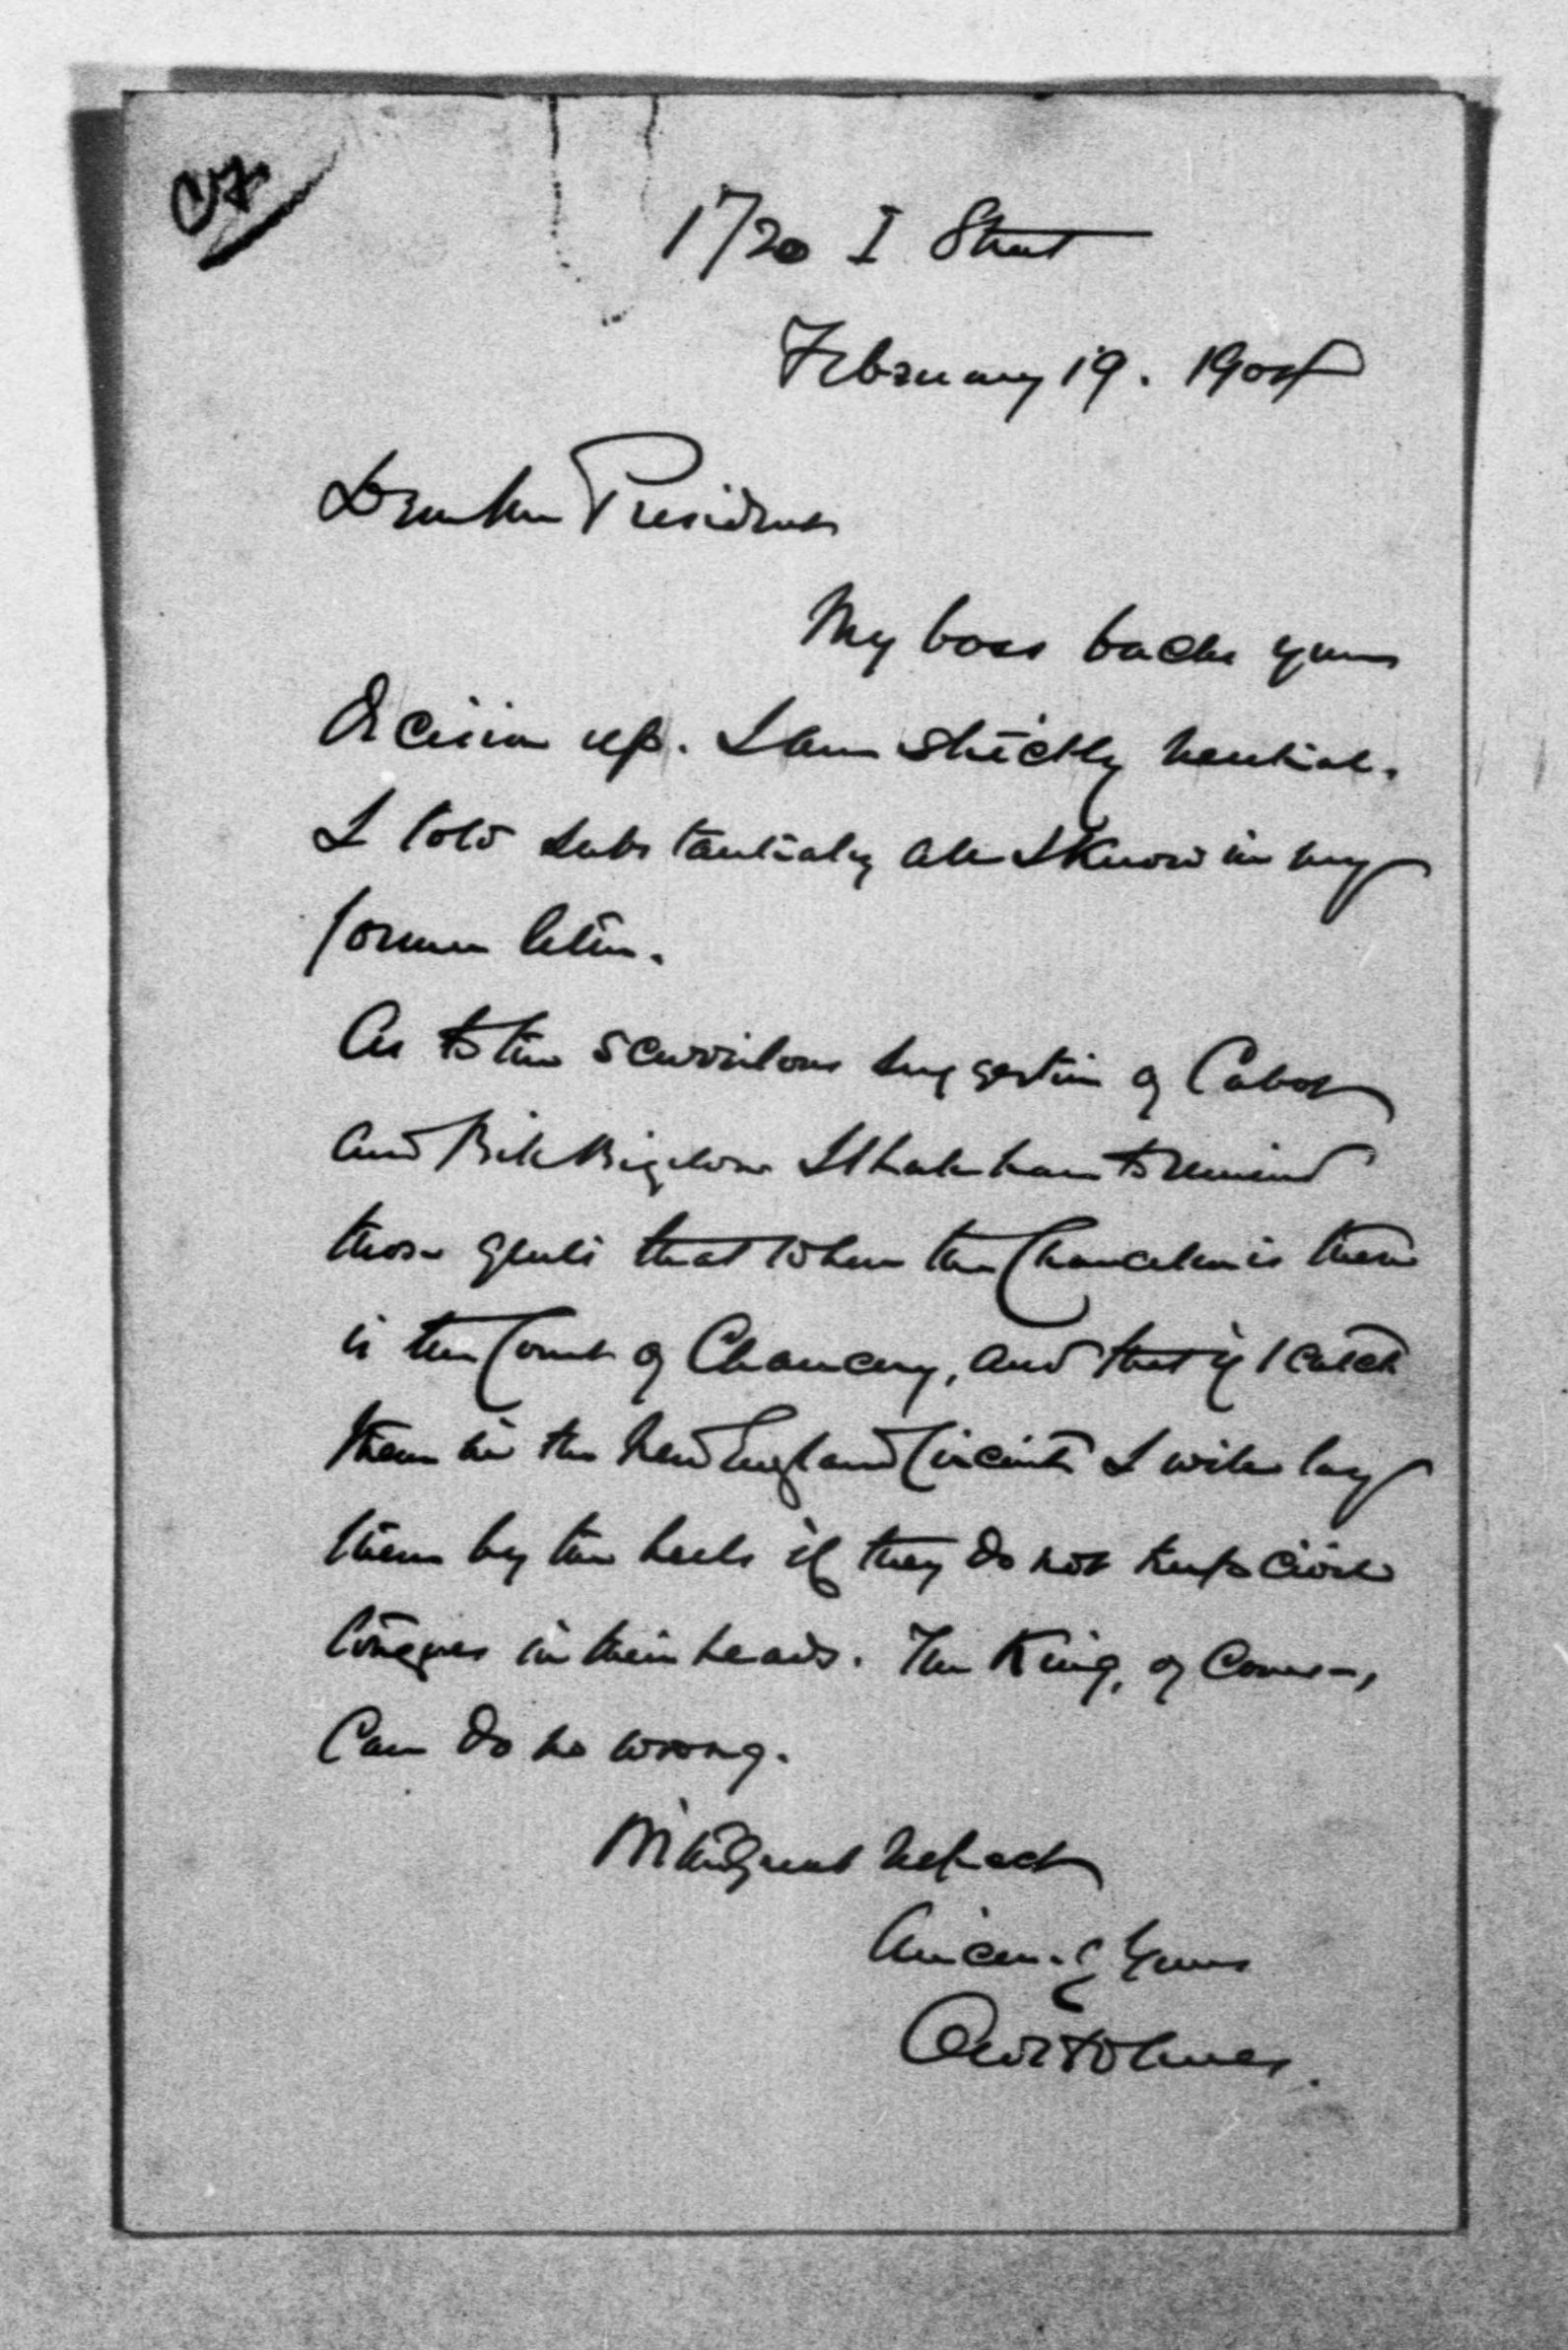 CF
1720 I Street
February 19. 1904
Dear Mr President
My boss backs your
decision up. I am strictly neutral.
I told substantially all I know in my
former letter.
As to the scurrilous suggestion of Cabot
and Bill Bigelow I shall have to remind
those gents that where the Chancellor is there
is the Court of Chancery, and that if I catch
them in the New England Circuit I will lay
them by the heels if they do not keep civil
tongues in their heads. The King, of course,
can do no wrong.
With great respect
Sincerely Yours
O W Holmes.